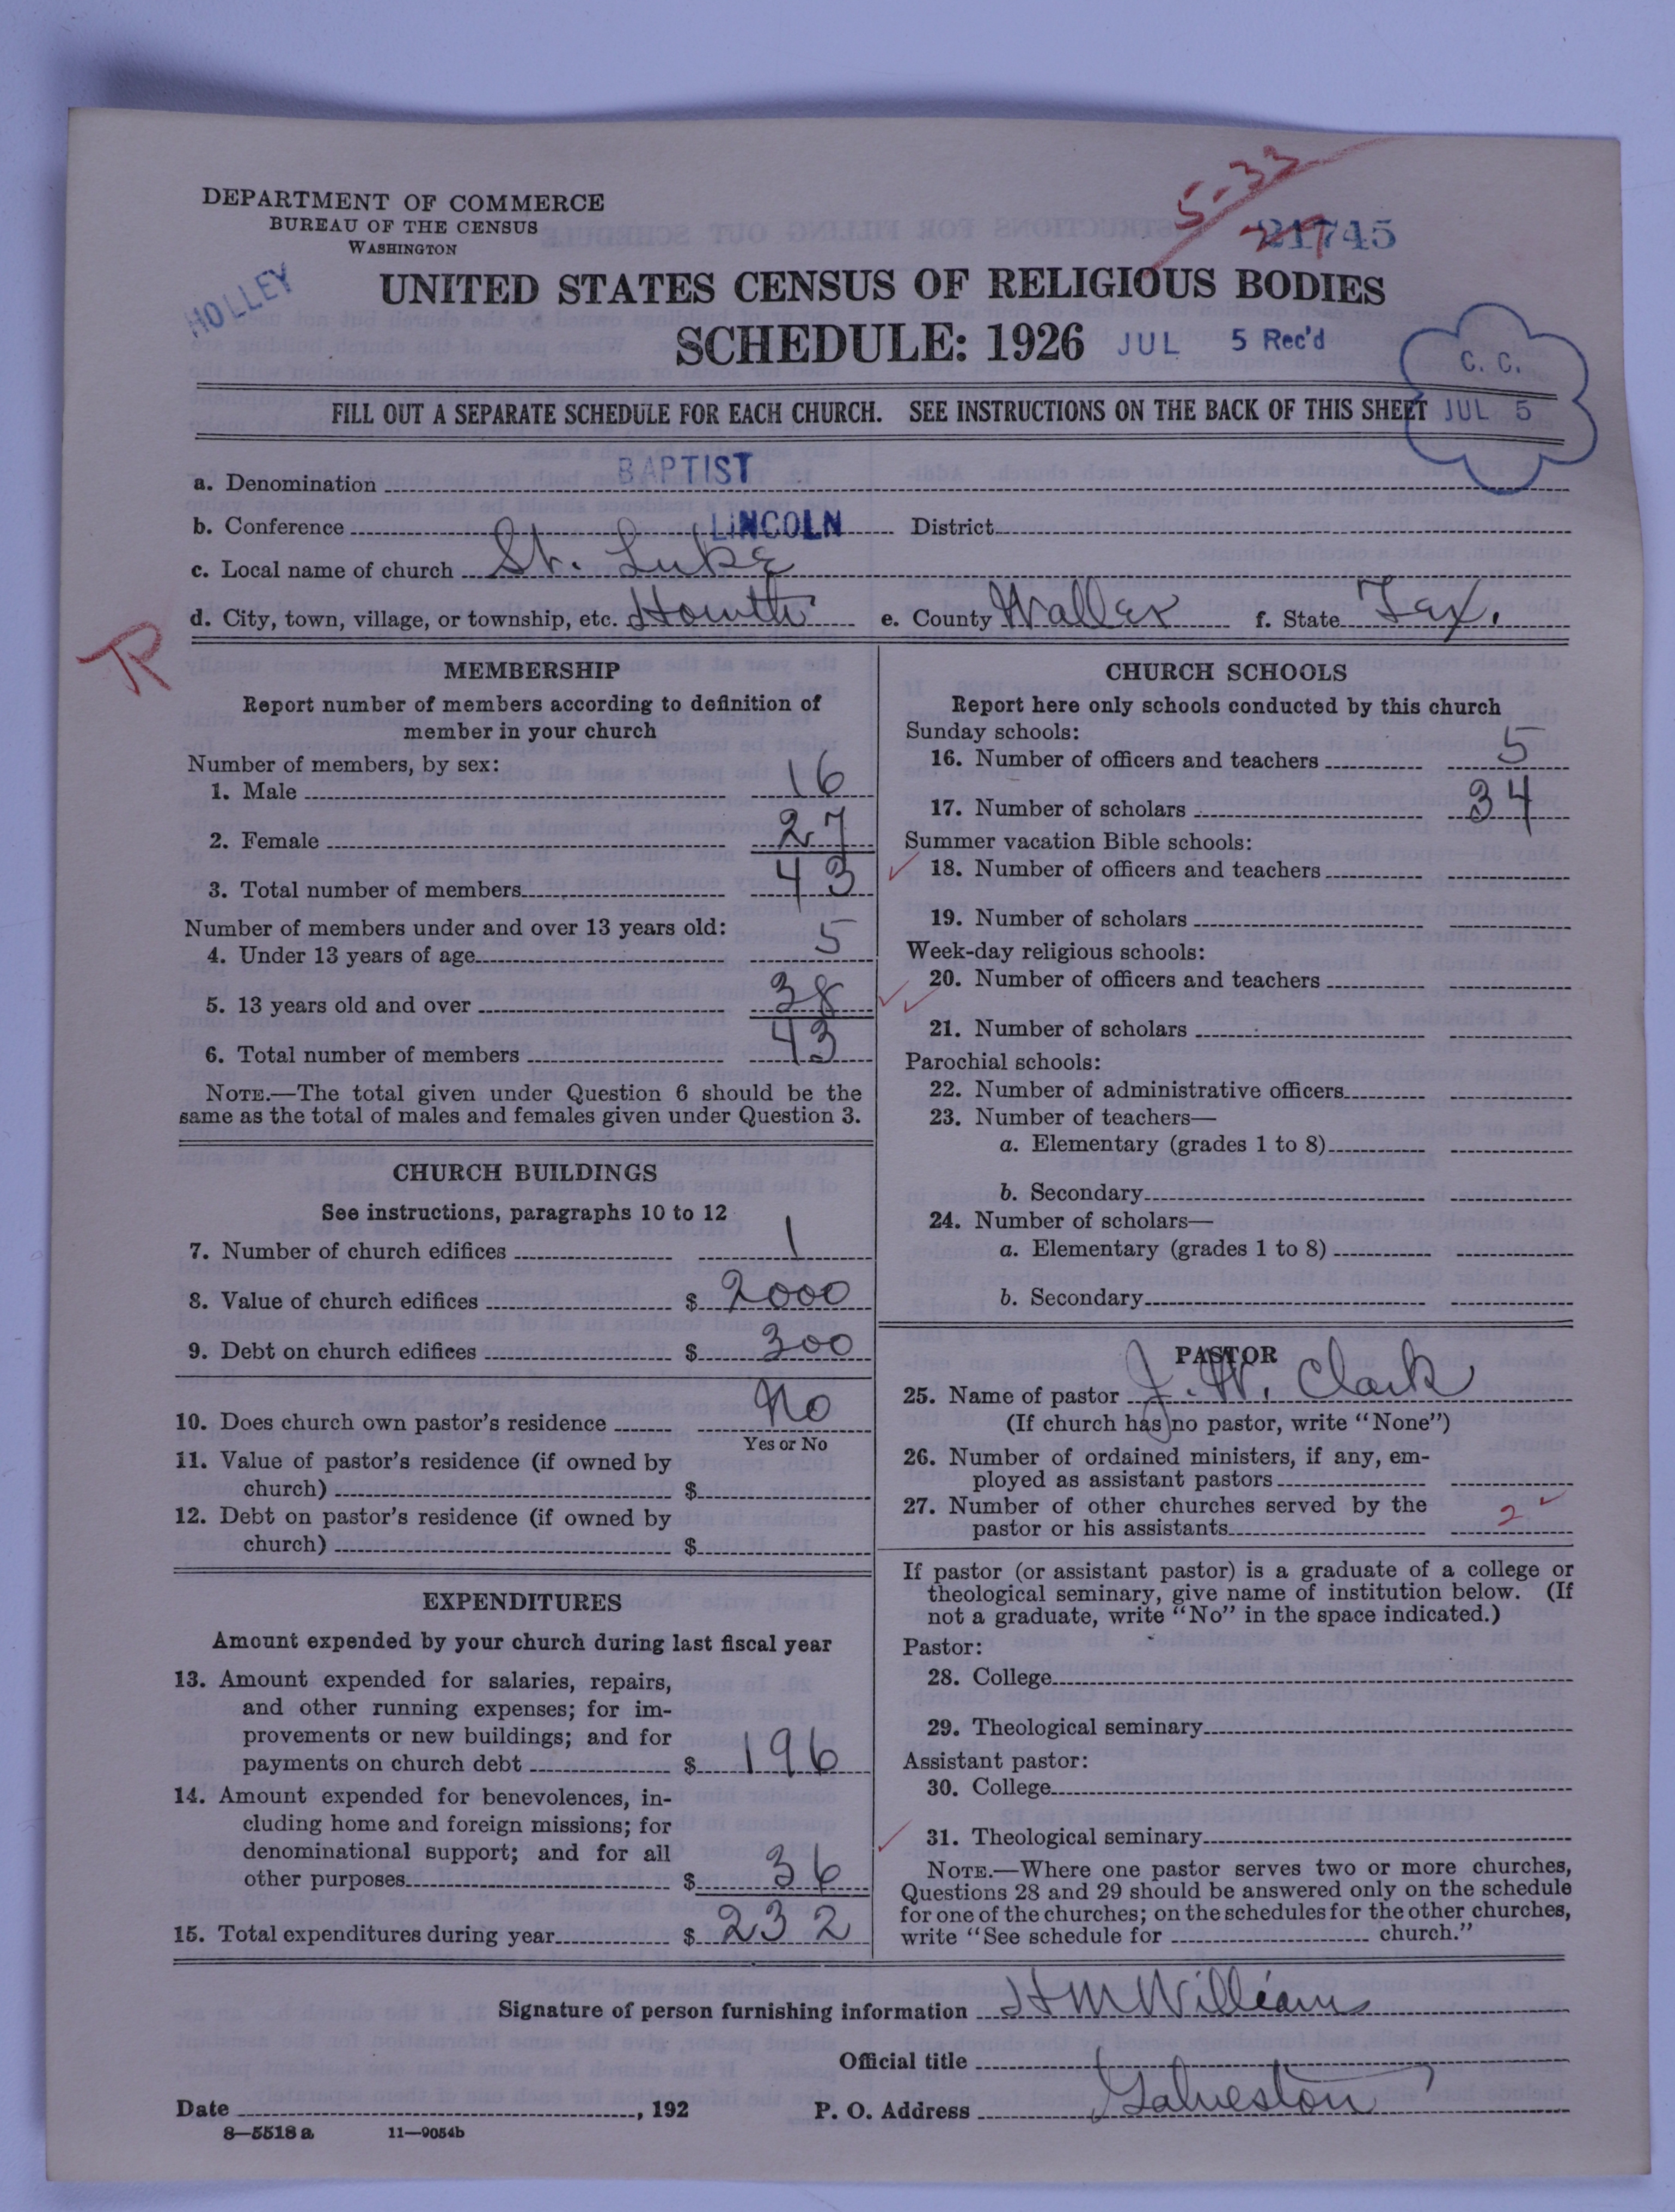 5-33
DEPARTMENT OF COMMERCE
BUREAU OF THE CENSUS
WASHINGTON
21745
HOLLEY
UNITED STATES CENSUS OF RELIGIOUS BODIES
SCHEDULE: 1926 JUL 5 Rec'd
C. C.
JUL 5
FILL OUT A SEPARATE SCHEDULE FOR EACH CHURCH. SEE INSTRUCTIONS ON THE BACK OF THIS SHEET
a. Denomination BAPTIST
b. Conference LINCOLN District
c. Local name of church St. Luke
d. City, town, village, or township, etc. Howth e. County Waller f. State Tex.
R
MEMBERSHIP
Report number of members according to definition of
member in your church
Number of members, by sex:
1. Male 16
2. Female 27
3. Total number of members 43
Number of members under and over 13 years old:
4. Under 13 years of age 5
5. 13 years old and over 38
6. Total number of members 43
NOTE.—The total given under Question 6 should be the
same as the total of males and females given under Question 3.
CHURCH BUILDINGS
See instructions, paragraphs 10 to 12
7. Number of church edifices 1
8. Value of church edifices $ 2000
9. Debt on church edifices $ 300
10. Does church own pastor's residence No
Yes or No
11. Value of pastor's residence (if owned by
church) $
12. Debt on pastor's residence (if owned by
church) $
EXPENDITURES
Amount expended by your church during last fiscal year
13. Amount expended for salaries, repairs,
and other running expenses; for im-
provements or new buildings; and for
payments on church debt $ 196
14. Amount expended for benevolences, in-
cluding home and foreign missions; for
denominational support; and for all
other purposes $ 36
15. Total expenditures during year $ 232
CHURCH SCHOOLS
Report here only schools conducted by this church
Sunday schools:
16. Number of officers and teachers 5
17. Number of scholars 34
Summer vacation Bible schools:
18. Number of officers and teachers
19. Number of scholars
Week-day religious schools:
20. Number of officers and teachers
21. Number of scholars
Parochial schools:
22. Number of administrative officers
23. Number of teachers—
a. Elementary (grades 1 to 8)
b. Secondary
24. Number of scholars—
a. Elementary (grades 1 to 8)
b. Secondary
PASTOR
25. Name of pastor J. W. Clark
(If church has no pastor, write "None")
26. Number of ordained ministers, if any, em-
ployed as assistant pastors
27. Number of other churches served by the
pastor or his assistants 2
If pastor (or assistant pastor) is a graduate of a college or
theological seminary, give name of institution below. (If
not a graduate, write "No" in the space indicated.)
Pastor:
28. College
29. Theological seminary
Assistant pastor:
30. College
31. Theological seminary
NOTE.—Where one pastor serves two or more churches,
Questions 28 and 29 should be answered only on the schedule
for one of the churches; on the schedules for the other churches,
write "See schedule for church."
Signature of person furnishing information H M William
Official title
Date , 192 P. O. Address Galveston
8—5518 a 11—9054b